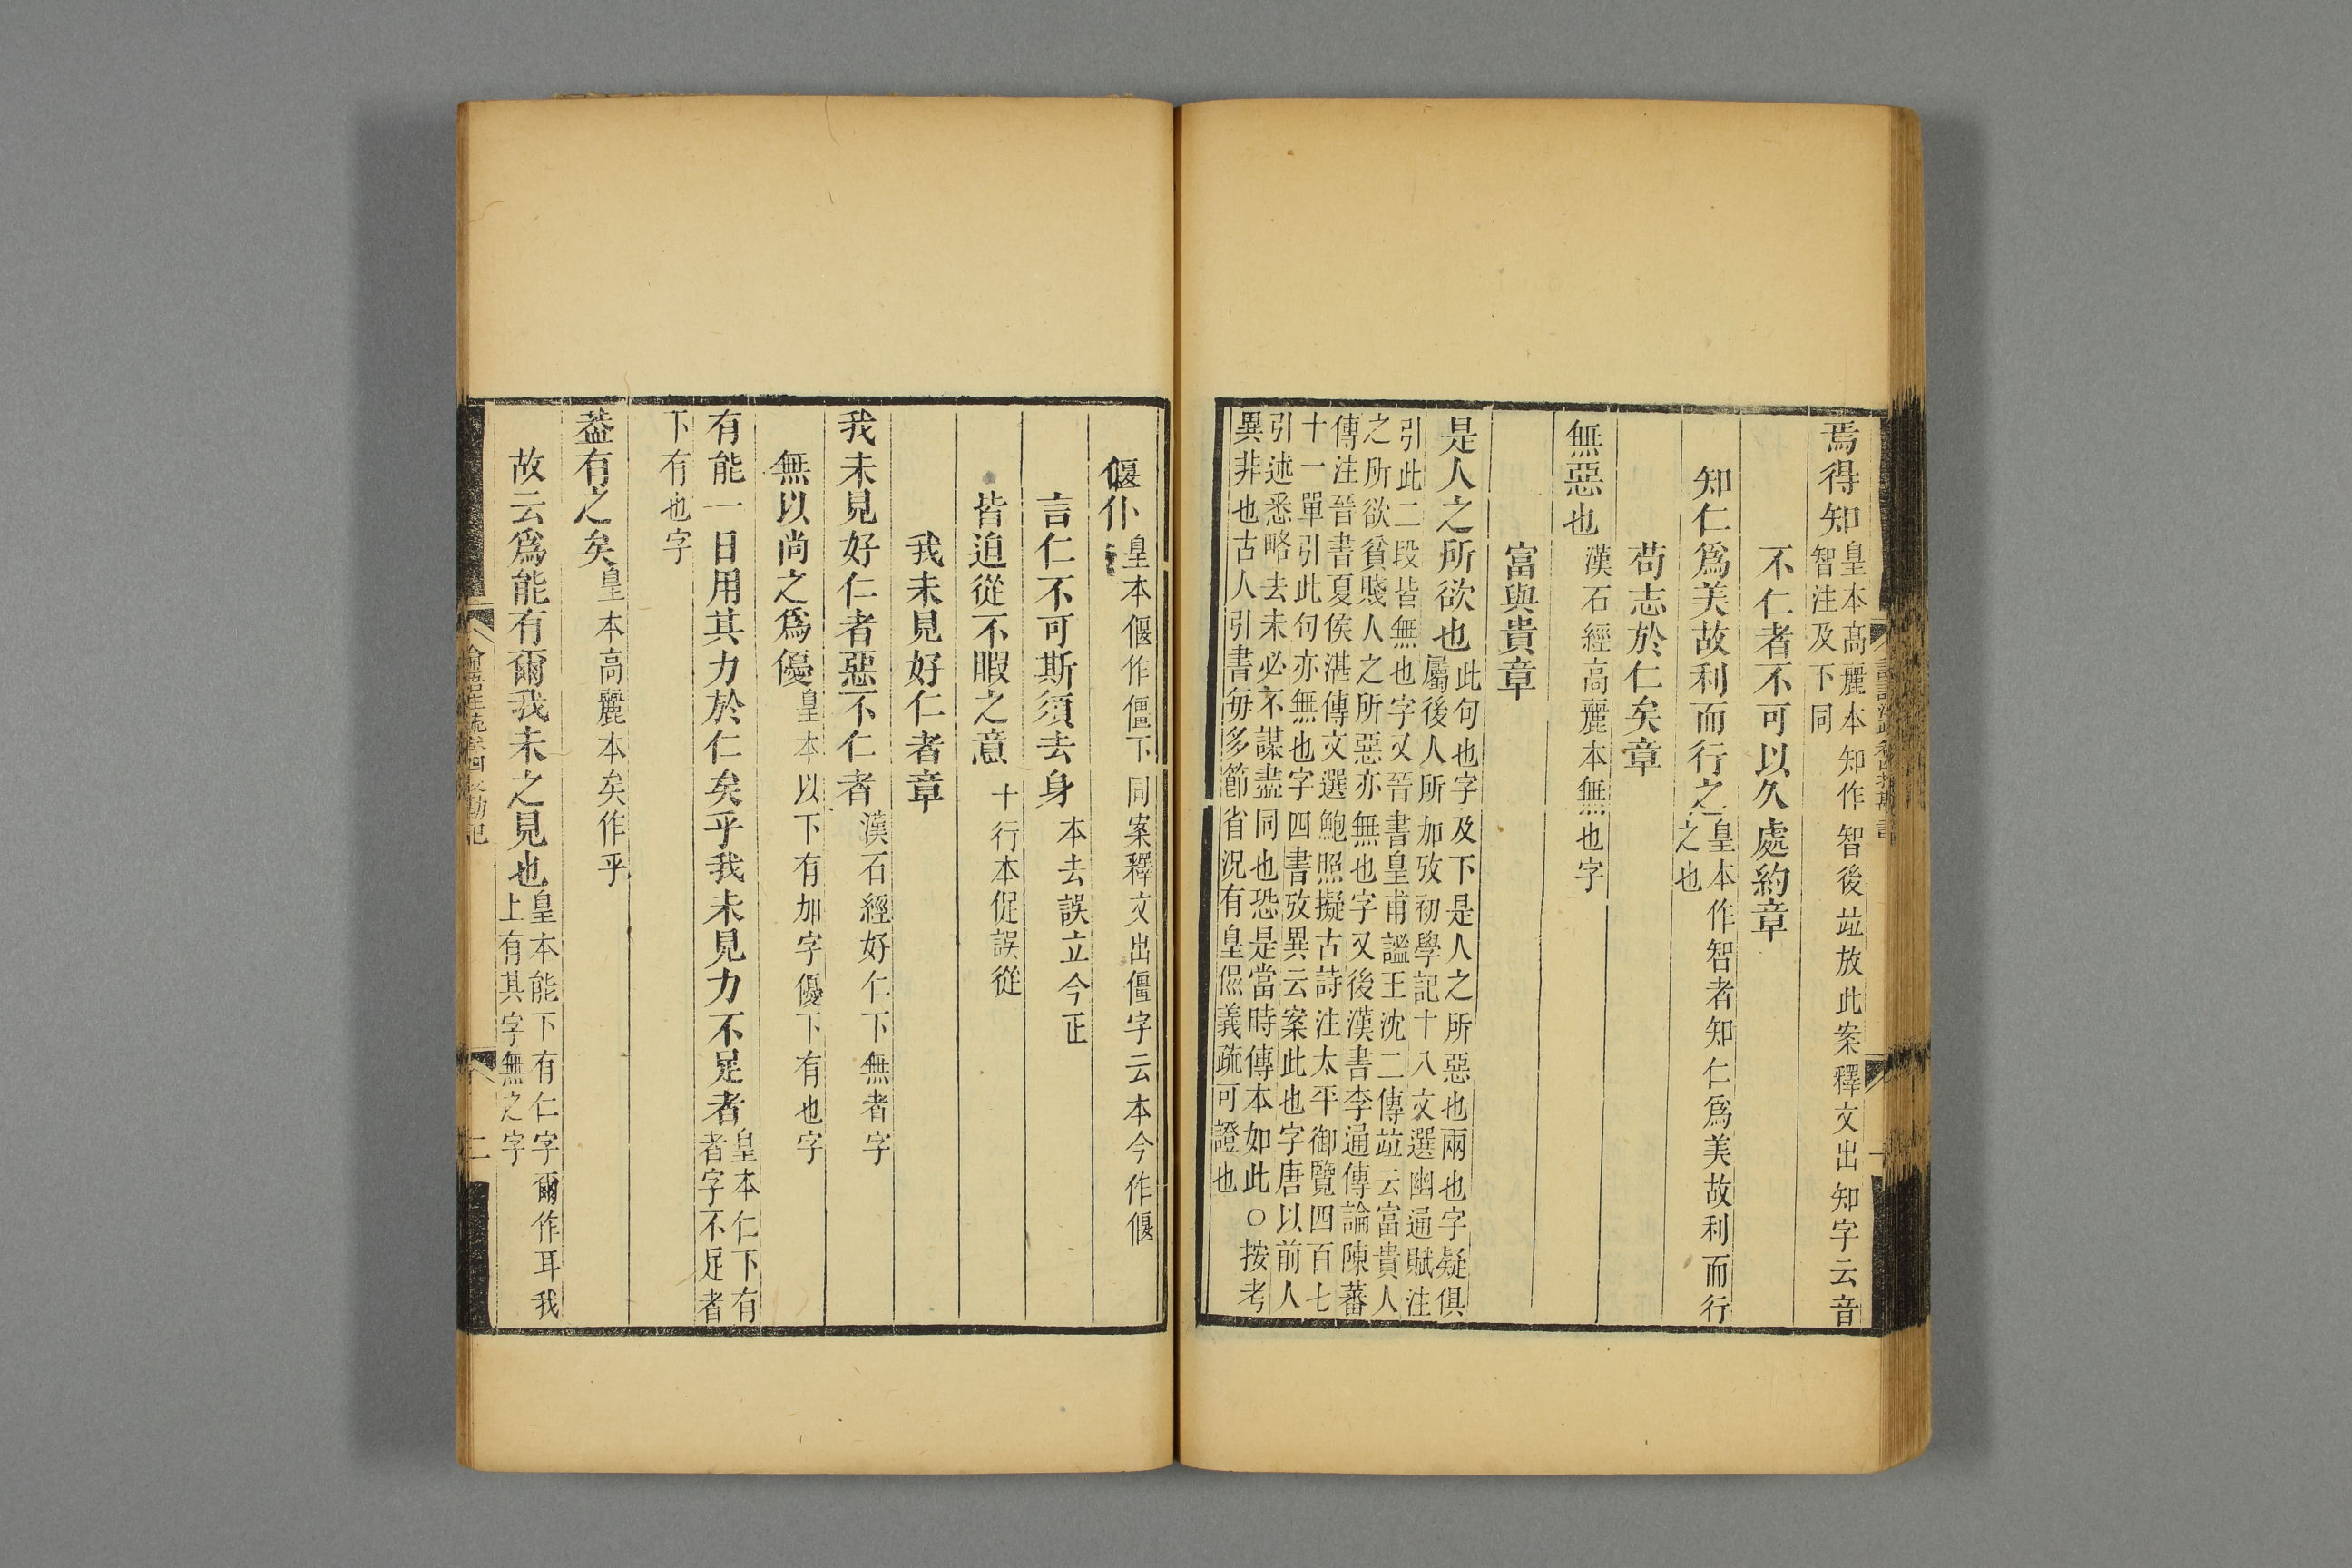 焉得知皇本高麗本知作智後竝放此案釋文出知字云音
智注及下同
不仁者不可以久處約章
知仁爲美故利而行之皇本作智者知仁爲美故利而行
之也
苟志於仁矣章
無惡也漢石經高麗本無也字
富與貴章
是人之所欲也此句也字及下是人之所惡也兩也字疑俱
屬後人所加攷初學記十八文選幽通賦注
引此二段皆無也字又晉書皇甫謐王沈二傳竝云富貴人
之所欲貧賤人之所惡亦無也字又後漢書李通傳論陳蕃
傳注晉書夏侯湛傳文選鮑照擬古詩注太平御覽四百七
十一單引此句亦無也字四書攷異云案此也字唐以前人
引述悉略去未必不謀盡同也恐是當時傳本如此○按考
異非也古人引書每多節省況有皇侃義疏可證也
偃仆皇本偃作僵下同案釋文出僵字云本今作偃
言仁不可斯須去身本去誤立今正
皆迫從不暇之意十行本促誤從
我未見好仁者章
我未見好仁者惡不仁者漢石經好仁下無者字
無以尚之爲優皇本以下有加字優下有也字
有能一日用其力於仁矣乎我未見力不足者皇本仁下有
者字不足者
下有也字
葢有之矣皇本高麗本矣作乎
故云爲能有爾我未之見也皇本能下有仁字爾作耳我
上有其字無之字
論語注疏卷四校勘記
二